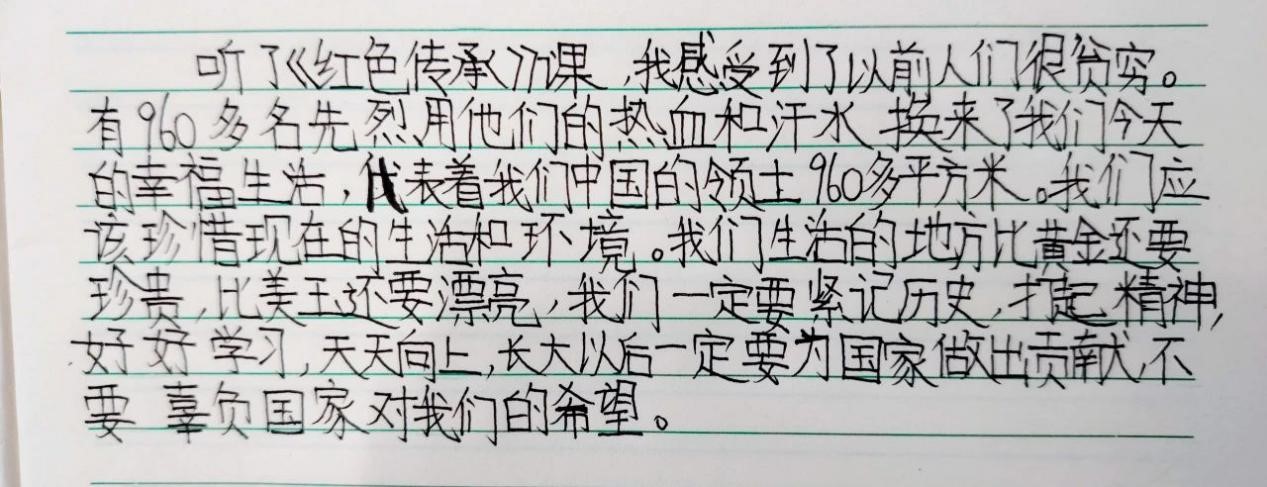 听了《红色传承》课,我感受到了以前人们很贫穷。
有960多名先烈用他们的热血和汗水换来了我们今天
的幸福生活,代表着我们中国的领土960多平方米。我们应
该珍惜现在的生活和环境。我们生活的地方比黄金还要
珍贵,比美玉还要漂亮,我们一定要紧记历史,打起精神,
好好学习,天天向上,长大以后一定要为国家做出贡献,不
要辜负国家对我们的希望。